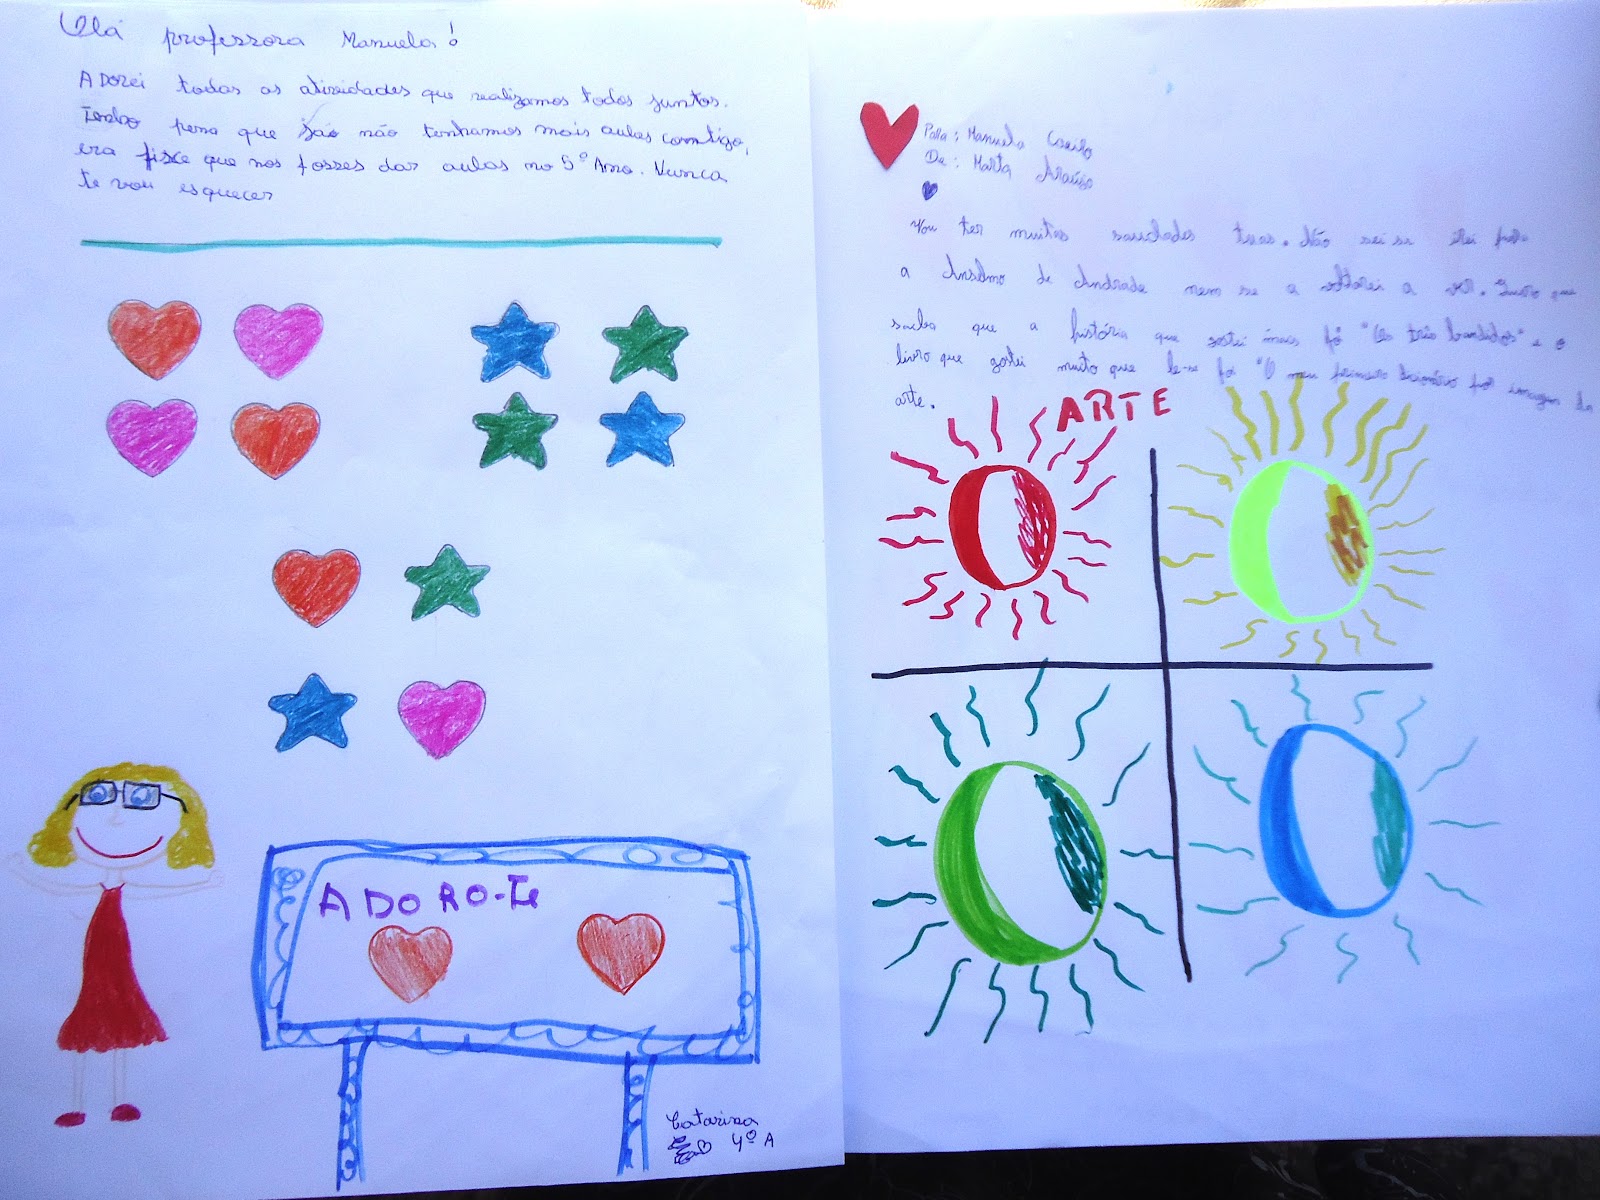 Olá professora Manuela!
Adorei todas as atividades que realizamos todos juntos.
Tenho pena que não tenhamos mais aulas comtigo,
era fixe que nos fosses dar aulas no 5º Ano. Nunca
te vou esquecer
ADORO-TE
Catarina
4º A
Para: Manuela Caeiro
De: Marta Araújo
Vou ter muitas saudades tuas. Não sei se irei para
a Anselmo de Andrade nem se a voltarei a ver. Quero que
saiba que a história que gostei mais foi "Os três bandidos" e o
livro que gostei muito que le-se foi "O meu primeiro dicionário por imagem da
arte.
ARTE